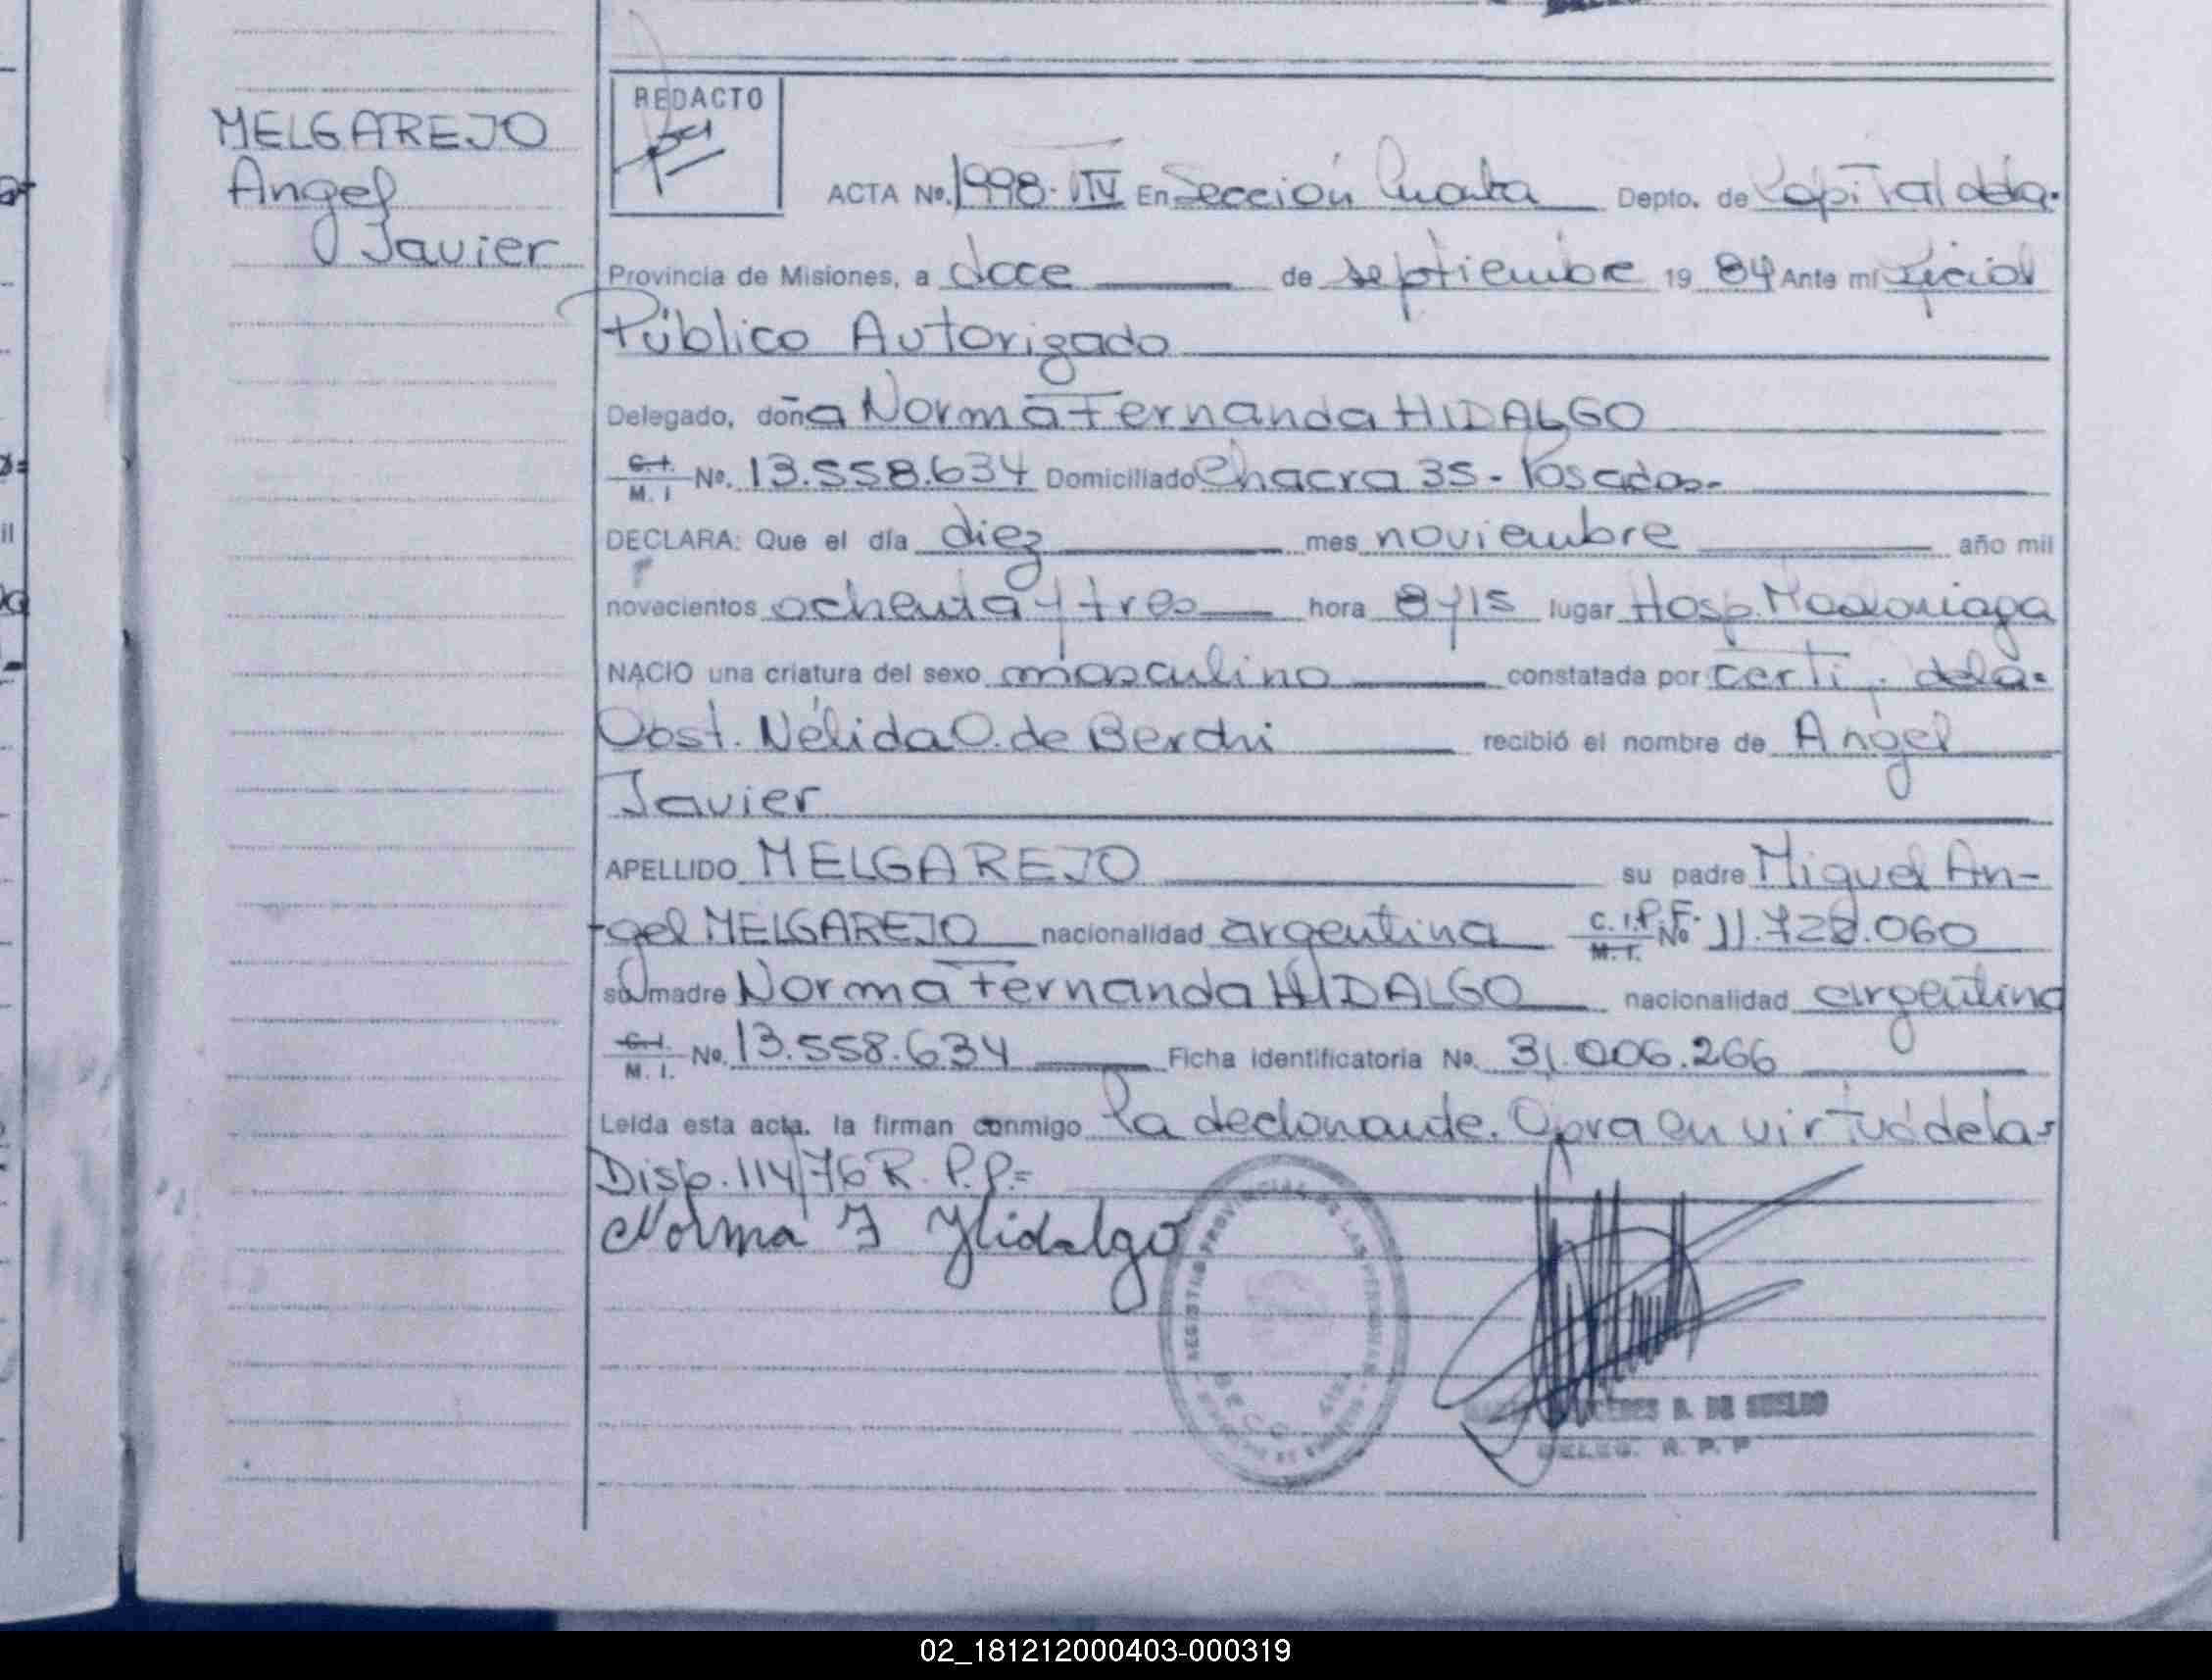 MELGAREJO
Angel
Javier
REDACTO
ACTA Nº. 1998- En Sección Cuarta Depto. de Capital dela.
Provincia de Misiones, a doce de septiembre 19 84 Ante mí Oficial
Público Autorizado
Delegado, doña Norma Fernanda HIDALGO
C.I. M. I Nº. 13.558.634 Domiciliado Chacra 35 - Posadas-
DECLARA: Que el día diez mes noviembre año mil
novecientos ochenta y tres hora 8 y 15 lugar Hosp. Madariaga
NACIO una criatura del sexo masculino constatada por certi. dela-
Obst. Nélida O. de Berchi recibió el nombre de Angel
Javier
APELLIDO MELGAREJO su padre Miguel An-
-gel MELGAREJO nacionalidad argentina C. I. P.F. M. I. Nº 11.728.060
su madre Norma Fernanda HIDALGO nacionalidad argentina
C.I. M. I. Nº. 13.558.634 Ficha identificatoria Nº. 31.006.266
Leída esta acta. la firman conmigo la declarante. Obra en virtud dela-
Disp. 114/76 R. P.P.=
Norma F Hidalgo
REGISTRO PROVINCIAL DE LAS PERSONAS
B. DE SUELDO
DELEG. R. P. P
02_181212000403-000319